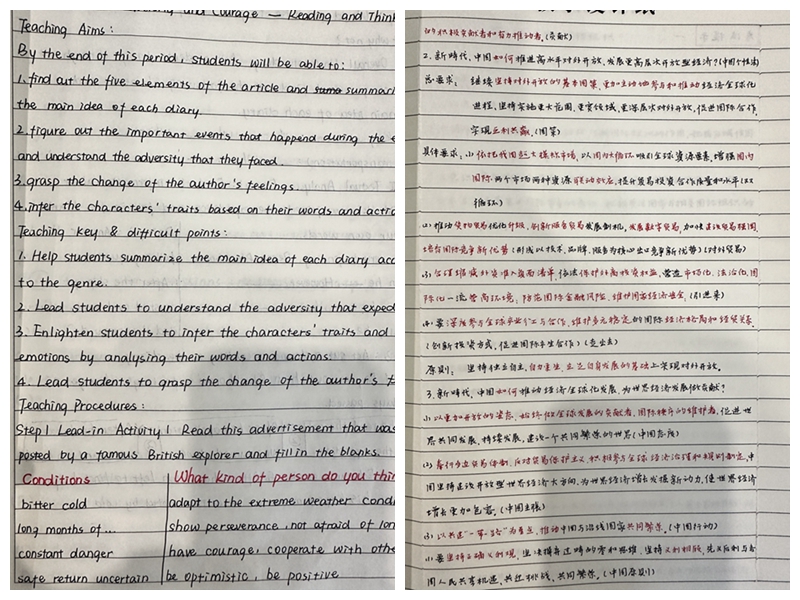 and Courage — Reading and Think
Teaching Aims:
By the end of this period, students will be able to:
1. find out the five elements of the article and summari
the main idea of each diary.
2. figure out the important events that happend during the e
and understand the adversity that they faced.
3. grasp the change of the author's feelings.
4. infer the characters' traits based on their words and actio
Teaching key & difficult points:
1. Help students summarize the main idea of each diary acc
to the genre.
2. Lead students to understand the adversity that exped
3. Enlighten students to infer the characters' traits and
emotions by analysing their words and actions.
4. Lead students to grasp the change of the author's f
Teaching Procedures:
Step 1 Lead-in Activity 1 Read this advertisement that was
posted by a famous British explorer and fill in the blanks.
Conditions What kind of person do you thin
bitter cold adapt to the extreme weather cond
long months of ... show perseverance, not afraid of lon
constant danger have courage, cooperate with othe
safe return uncertain be optimistic, be positive
的积极贡献者和努力推动者。(贡献)
2. 新时代,中国如何推进高水平对外开放,发展更高层次开放型经济?(中国个体)
总要求: 继续坚持对外开放的基本国策,更加主动地参与和推动经济全球化
进程,坚持实施更大范围、更宽领域、更深层次对外开放,促进国际合作,
实现互利共赢。(国策)
具体要求: (1) 依托我国超大规模市场,以国内大循环吸引全球资源要素,增强国内
国际两个市场两种资源联动效应,提升贸易投资合作质量和水平(双
循环)
(2) 推动货物贸易优化升级,创新服务贸易发展机制,发展数字贸易,加快建设贸易强国,
培育国际竞争新优势(形成以技术、品牌、服务为核心出口竞争新优势)(对外贸易)
(3) 合理缩减外资准入负面清单,依法保护外商投资权益,营造市场化、法治化、国
际化一流营商环境,防范国际金融风险,维护国家经济安全,(引进来)
(4) 要深度参与全球产业分工与合作,维护多元稳定的国际经济格局和经贸关系
(创新投资方式,促进国际产生合作)(走出去)
原则: 坚持独立自主、自力更生,立足自身发展的基础上实现对外开放。
3. 新时代,中国如何推动经济全球化发展,为世界经济发展做贡献?
(1) 以更加开放的姿态,始终做全球发展的贡献者,国际秩序的维护者,促进世
界共同发展,持续发展,建设一个共同繁荣的世界(中国态度)
(2) 奉行多边贸易体制,反对贸易保护主义,积极参与全球经济治理和规则制定,中
国坚持建设开放型世界经济大方向,为世界经济增长发掘新动力,使世界经济
增长更加包容。(中国主张)
(3) 以共建"一带一路"为重点,推动中国与沿线国家共同繁荣。(中国行动)
(4) 要坚持正确义利观,坚决摒弃过时的零和思维,坚持义利相兼,先义后利与各
国人民共享机遇,共迎挑战、共同繁荣。(中国原则)